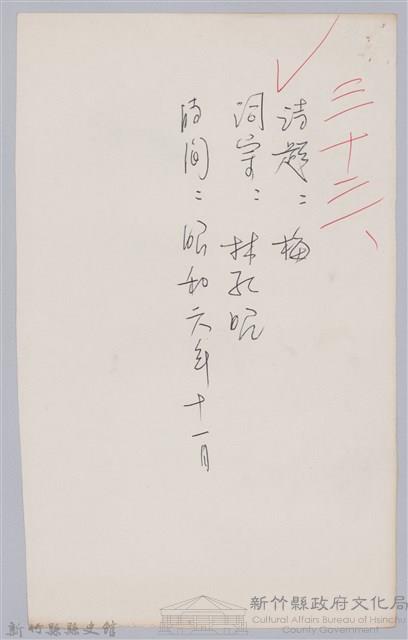 三十二、
詩題：梅
詞宗：林孔昭
時間：昭和六年十一月
新竹縣縣史館
新竹縣政府文化局
Cultural Affairs Bureau of Hsinchu
County Government